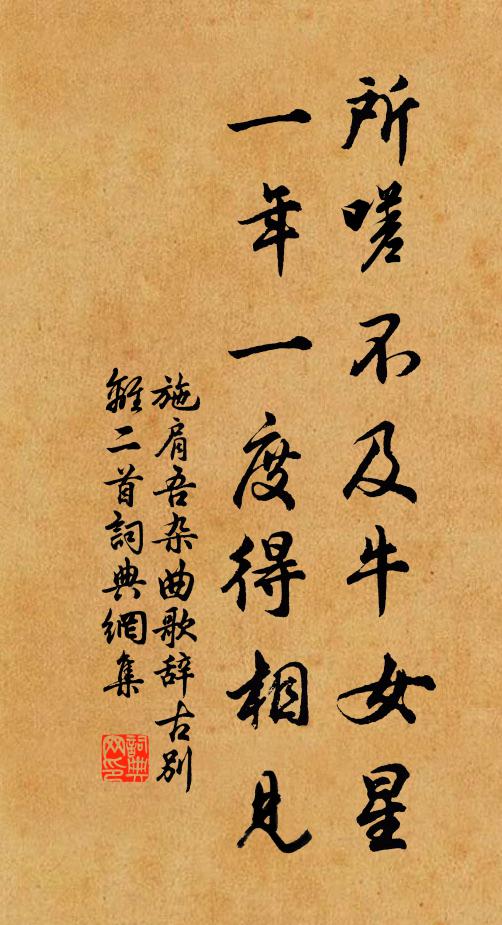 所嗟不及牛女星
一年一度得相見
施肩吾杂曲歌辞古别
離二首詞典網集
詞典网印